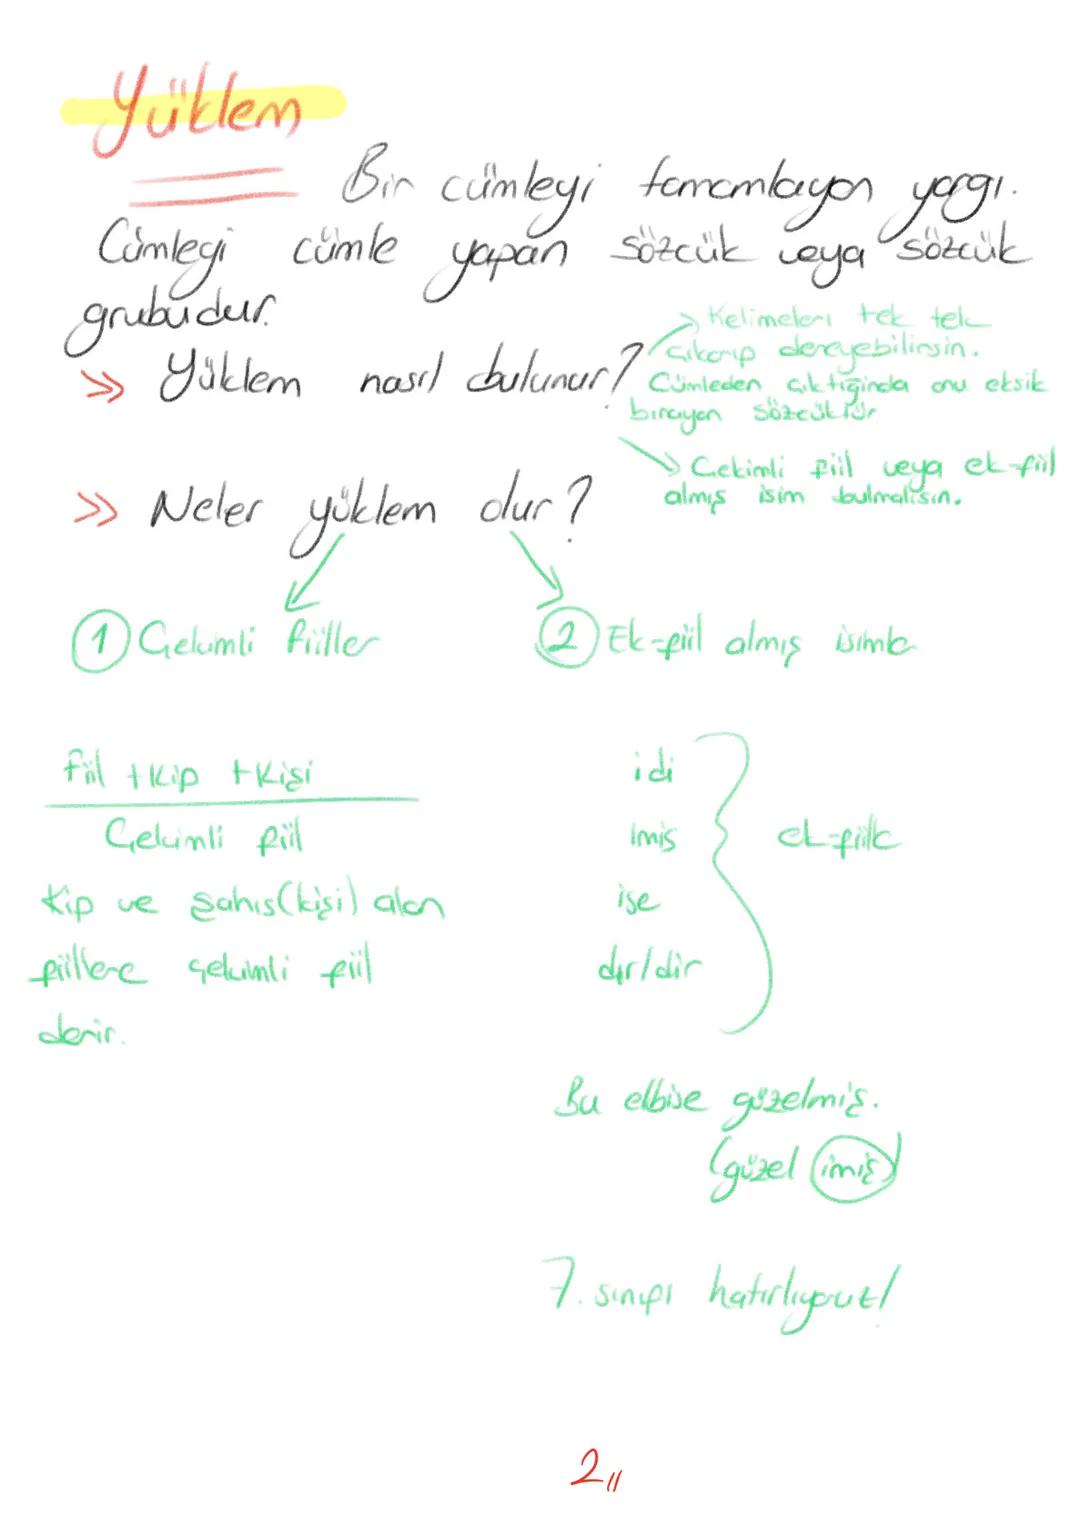 Yüklem
Bir cümleyi tamamlayan yargı.
Cümleyi cümle yapan sözcük veya sözcük
grubudur.
>> Yüklem nasıl bulunur?
→ Kelimeleri tek tek
çıkarıp deneyebilirsin.
Cümleden çıktığında onu eksik
bırayan sözcüktür
→ Çekimli fiil veya ek-fiil
almış isim bulmalısın.
>> Neler yüklem olur?
1 Çekimli fiiller
2 Ek-fiil almış isimle
fiil + kip + kişi
Çekimli fiil
Kip ve şahıs(kişi) alan
fiillere çekimli fiil
denir.
idi
imiş
ise
dır/dir
ek-fiile
Bu elbise güzelmiş.
(güzel imiş)
7. sınıfı hatırlıyoruz!
2